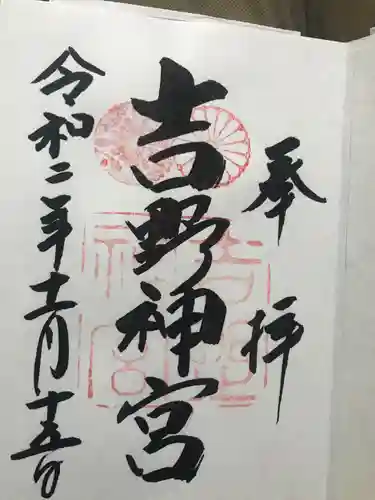 奉拝
吉野神宮
令和二年十一月十五日